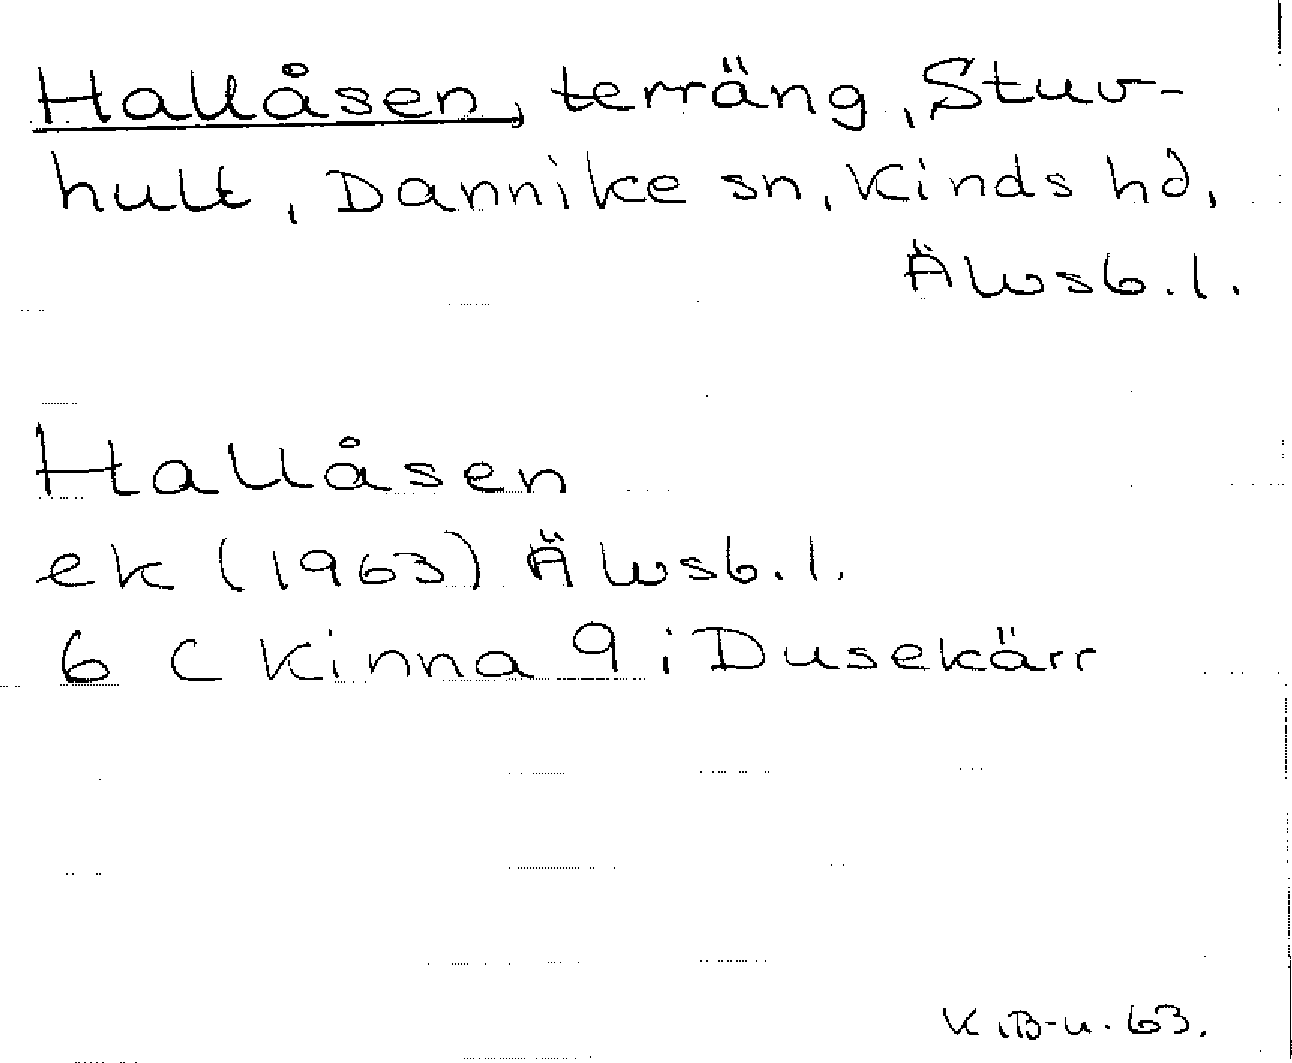 Hallåsen, terräng, Stuv-
hult, Dannike sn, Kinds hd,
Älvsb. l.
Hallåsen
ek (1963) Älvsb. l.
6 C Kinna 9 i Dusekärr
K.B-u. 63.